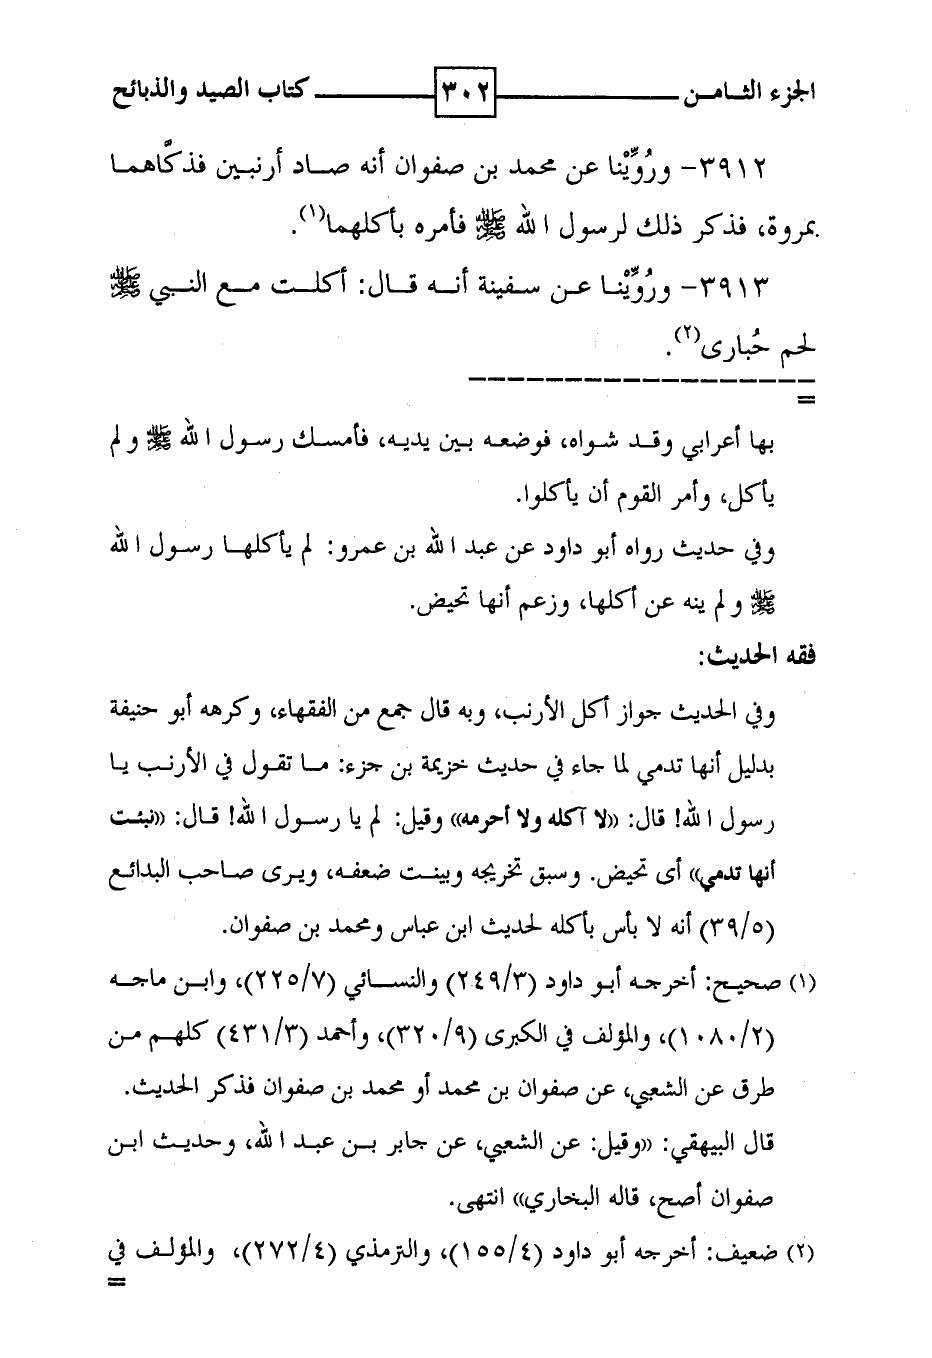 الجزء الثامن ٣٠٢ كتاب الصيد والذبائح
٣٩١٢- ورُوِّيْنا عن محمد بن صفوان أنه صاد أرنبين فذكَّاهما
بمروة، فذكر ذلك لرسول الله ﷺ فأمره بأكلهما(١).
٣٩١٣- ورُوِّيْنا عن سفينة أنه قال: أكلت مع النبي ﷺ
لحم حُبارى(٢).
=
بها أعرابي وقد شواه، فوضعه بين يديه، فأمسك رسول الله ﷺ ولم
يأكل، وأمر القوم أن يأكلوا.
وفي حديث رواه أبو داود عن عبد الله بن عمرو: لم يأكلها رسول الله
ﷺ ولم ينه عن أكلها، وزعم أنها تحيض.
فقه الحديث:
وفي الحديث جواز أكل الأرنب، وبه قال جمع من الفقهاء، وكرهه أبو حنيفة
بدليل أنها تدمي لما جاء في حديث خزيمة بن جزء: ما تقول في الأرنب يا
رسول الله! قال: «لا آكله ولا أحرمه» وقيل: لم يا رسول الله! قال: «نبئت
أنها تدمي» أى تحيض. وسبق تخريجه وبينت ضعفه، ويرى صاحب البدائع
(٣٩/٥) أنه لا بأس بأكله لحديث ابن عباس ومحمد بن صفوان.
(١) صحيح: أخرجه أبو داود (٢٤٩/٣) والنسائي (٢٢٥/٧)، وابن ماجه
(١٠٨٠/٢)، والمؤلف في الكبرى (٣٢٠/٩)، وأحمد (٤٣١/٣) كلهم من
طرق عن الشعبي، عن صفوان بن محمد أو محمد بن صفوان فذكر الحديث.
قال البيهقي: «وقيل: عن الشعبي، عن جابر بن عبد الله، وحديث ابن
صفوان أصح، قاله البخاري» انتهى.
(٢) ضعيف: أخرجه أبو داود (١٥٥/٤)، والترمذي (٢٧٢/٤)، والمؤلف في
=